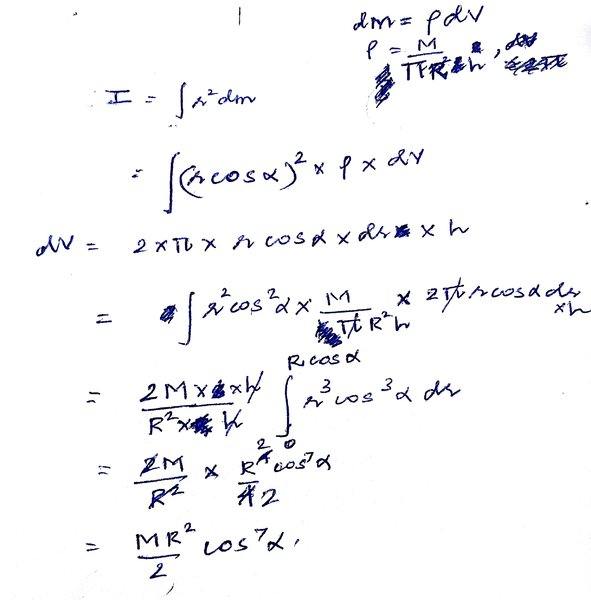 dm = ρ dV
ρ = M / πR²h ,
I = ∫ r² dm
= ∫ (r cos α)² × ρ × dV
dV = 2 × π × r cos α × dr × h
= ∫ r² cos² α × M / πR²h × 2πr cos α dr × h
= 2M × h / R² × h ∫₀^{R cos α} r³ cos³ α dr
= 2M / R² × R² cos⁷ α / 2
= MR² / 2 cos⁷ α .